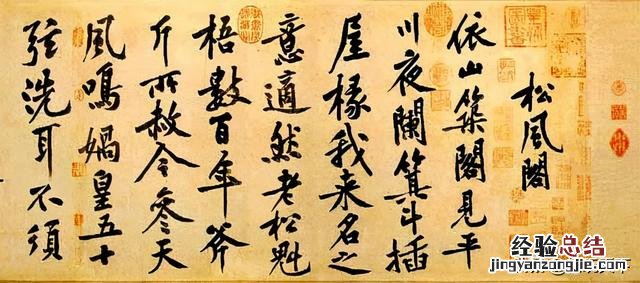 松風閣
依山築閣見平
川夜闌箕斗插
屋椽我來名之
意適然老松魁
梧數百年斧
斤所赦今參天
風鳴媧皇五十
弦洗耳不須
经验总结
jingyanzongjie.com